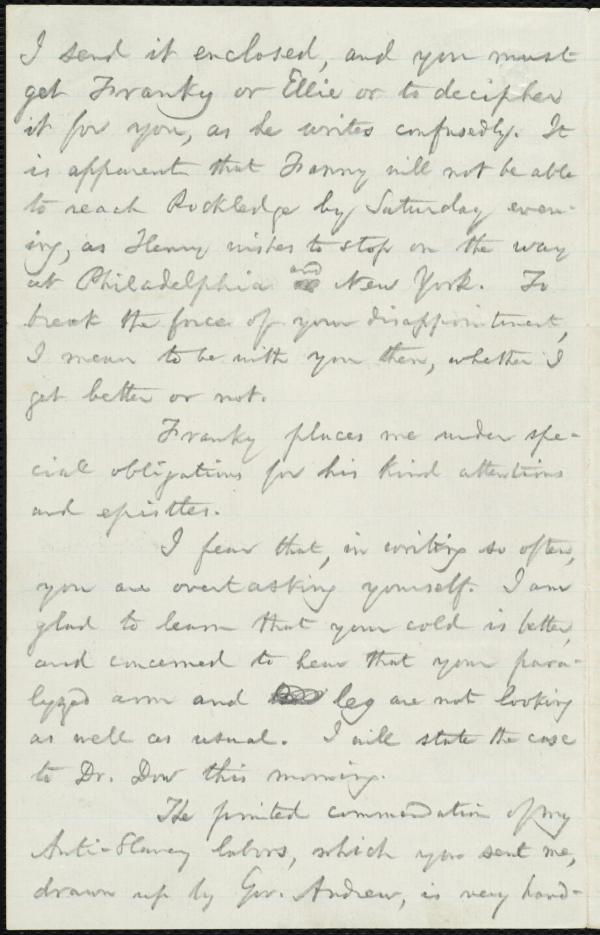 I send it enclosed, and you must
get Franky or Ellie or to decipher
it for you, as he writes confusedly. It
is apparent that Fanny will not be able
to reach Rockledge by Saturday even-
ing, as Henry wishes to stop on the way
at Philadelphia and New York. To
break the force of your disappointment,
I mean to be with you then, whether I
get better or not.
Franky places me under spe-
cial obligations for his kind attentions
and epistles.
I fear that, in writing so often,
you are overtasking yourself. I am
glad to learn that your cold is better,
and concerned to hear that your para-
lyzed arm and leg are not looking
as well as usual. I will state the case
to Dr. Dow this morning.
The printed commendation of my
Anti-Slavery labors, which you sent me,
drawn up by Gov. Andrew, is very hand-